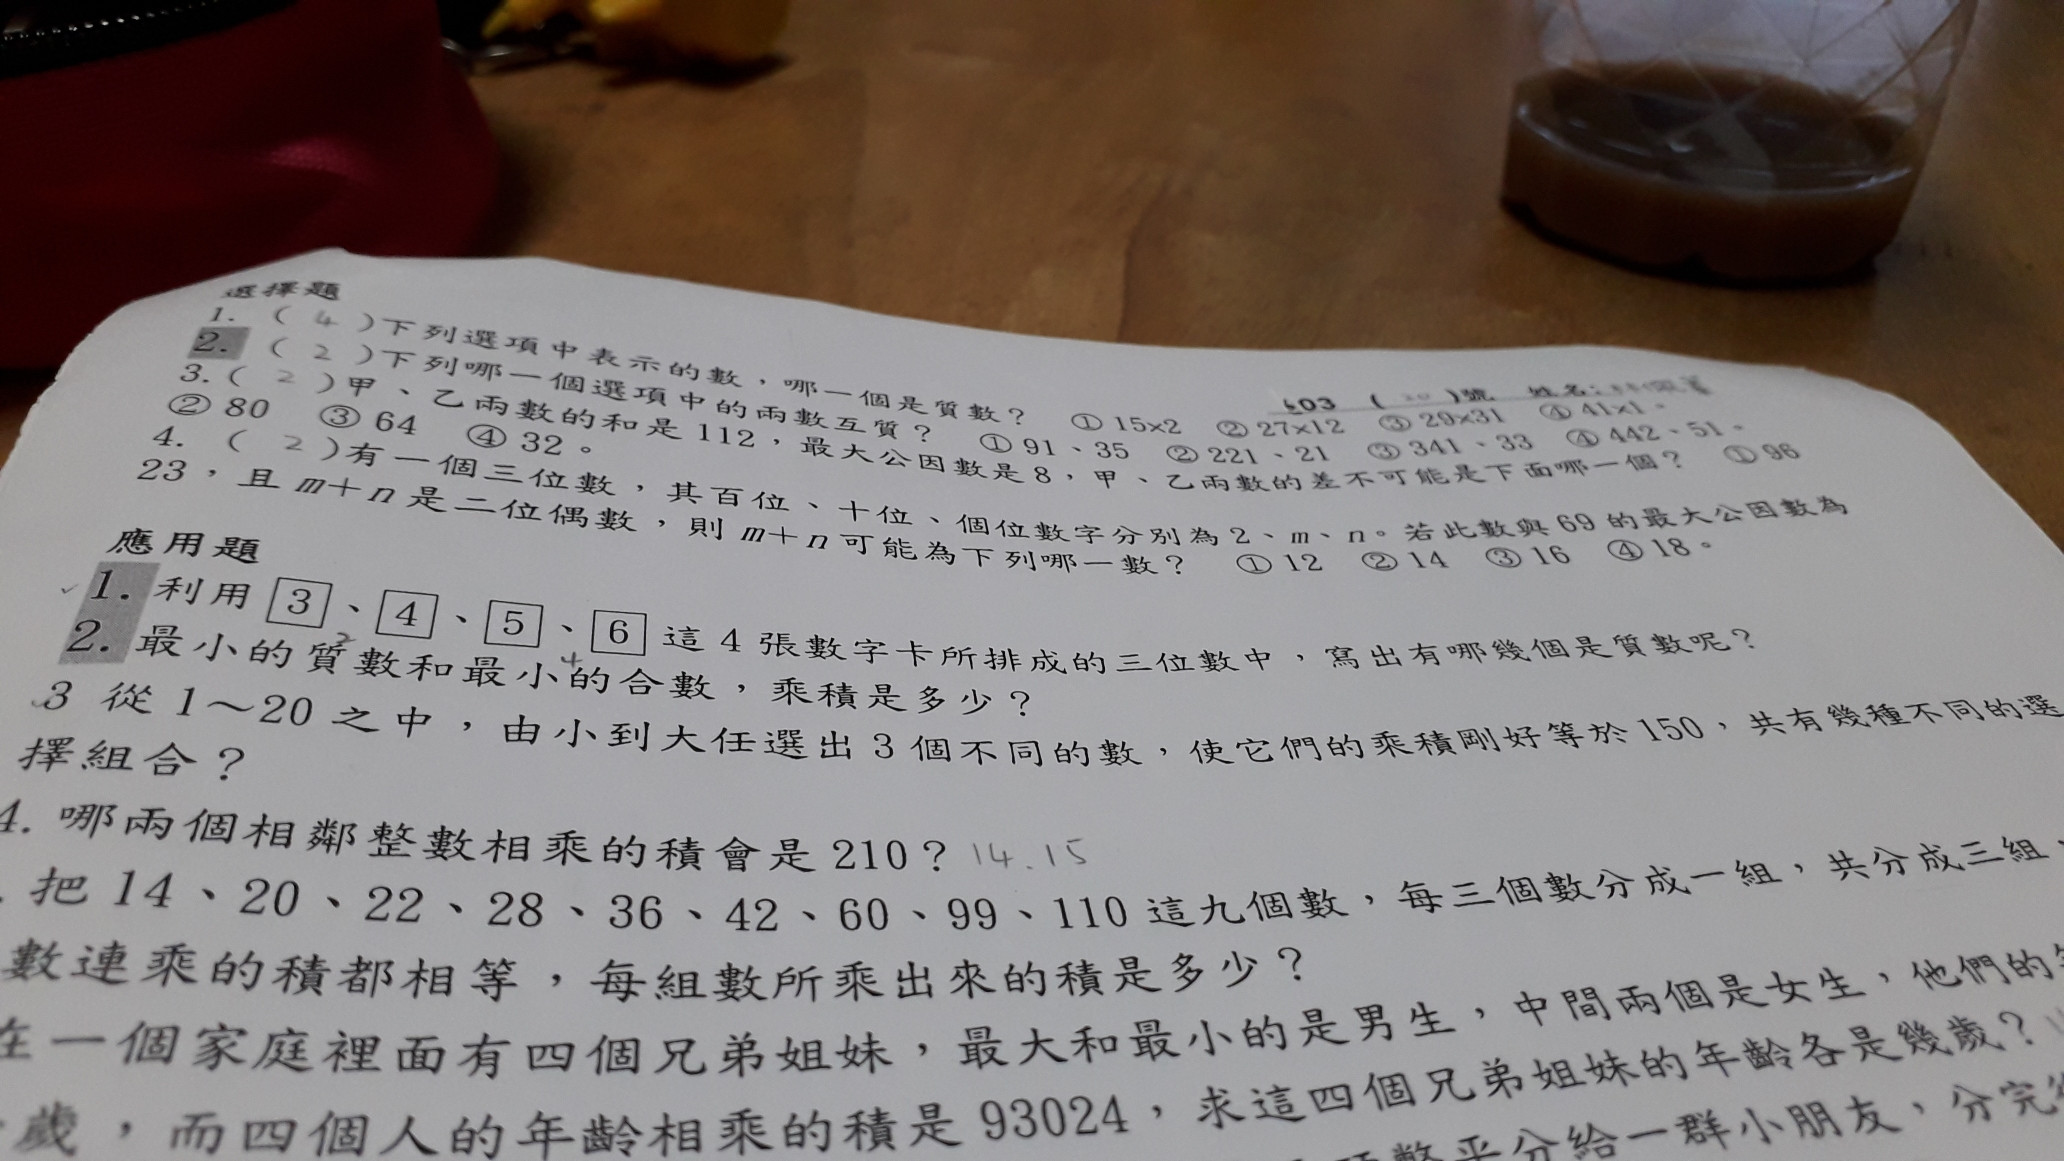 選擇題
603 ( 20 )號 姓名:
1. ( 4 )下列選項中表示的數，哪一個是質數？ ① 15×2 ② 27×12 ③ 29×31 ④ 41×1。
2. ( 2 )下列哪一個選項中的兩數互質？ ① 91、35 ② 221、21 ③ 341、33 ④ 442、51。
3. ( 2 )甲、乙兩數的和是 112，最大公因數是 8，甲、乙兩數的差不可能是下面哪一個？ ① 96
② 80 ③ 64 ④ 32。
4. ( 2 )有一個三位數，其百位、十位、個位數字分別為 2、m、n。若此數與 69 的最大公因數為
23，且 m＋n 是二位偶數，則 m＋n 可能為下列哪一數？ ① 12 ② 14 ③ 16 ④ 18。
應用題
1. 利用 3、4、5、6 這 4 張數字卡所排成的三位數中，寫出有哪幾個是質數呢？
2 4
2. 最小的質數和最小的合數，乘積是多少？
3 從 1～20 之中，由小到大任選出 3 個不同的數，使它們的乘積剛好等於 150，共有幾種不同的選
擇組合？
4. 哪兩個相鄰整數相乘的積會是 210？ 14.15
. 把 14、20、22、28、36、42、60、99、110 這九個數，每三個數分成一組，共分成三組，
數連乘的積都相等，每組數所乘出來的積是多少？
在一個家庭裡面有四個兄弟姐妹，最大和最小的是男生，中間兩個是女生，他們的
歲，而四個人的年齡相乘的積是 93024，求這四個兄弟姐妹的年齡各是幾歲？
整平分給一群小朋友，分完